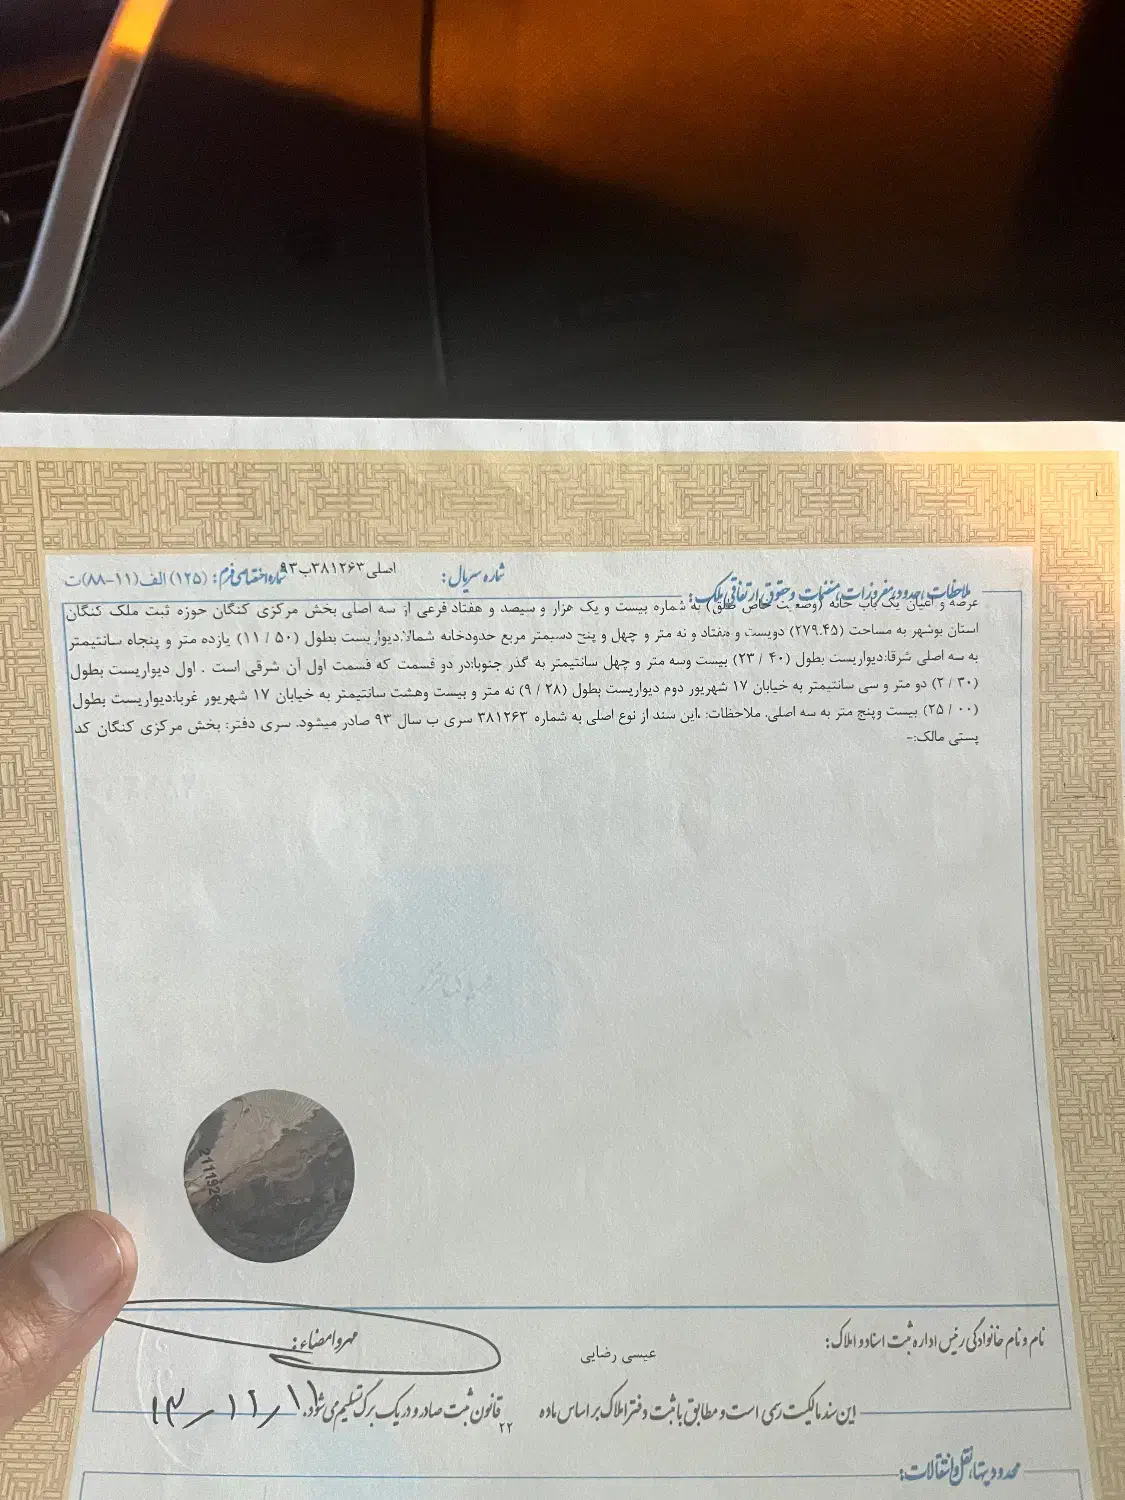 شماره اختصاصی فرم: (۱۲۵) الف (۱۱-۸۸)ت
شماره سریال:
اصلی۳۸۱۲۶۳ب۹۳
ملاحظات، حدود، مفروزات، منضمات و حقوق ارتفاقی ملک:
عرصه و اعیان یک باب خانه (وضعیت خاص طلق) به شماره بیست و یک هزار و سیصد و هفتاد فرعی از سه اصلی بخش مرکزی کنگان حوزه ثبت ملک کنگان
استان بوشهر به مساحت (۲۷۹.۴۵) دویست و هفتاد و نه متر و چهل و پنج دسیمتر مربع حدودخانه شمالا:دیواریست بطول (۵۰ / ۱۱) یازده متر و پنجاه سانتیمتر
به سه اصلی شرقا:دیواریست بطول (۴۰ / ۲۳) بیست وسه متر و چهل سانتیمتر به گذر جنوبا:در دو قسمت که قسمت اول آن شرقی است . اول دیواریست بطول
(۳۰ / ۲) دو متر و سی سانتیمتر به خیابان ۱۷ شهریور دوم دیواریست بطول (۲۸ / ۹) نه متر و بیست وهشت سانتیمتر به خیابان ۱۷ شهریور غربا:دیواریست بطول
(۰۰ / ۲۵) بیست وپنج متر به سه اصلی. ملاحظات: .این سند از نوع اصلی به شماره ۳۸۱۲۶۳ سری ب سال ۹۳ صادر میشود. سری دفتر: بخش مرکزی کنگان کد
پستی مالک:-
نام و نام خانوادگی رئیس اداره ثبت اسناد و املاک:
عیسی رضایی
مهر و امضاء:
این سند مالکیت رسمی است و مطابق با ثبت دفتر املاک بر اساس ماده ۲۲ قانون ثبت صادر و در یک برگ تسلیم می شود.
محدودیتها، نقل و انتقالات: